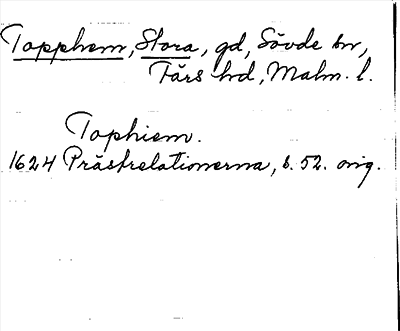 Topphem, Stora, gd, Sövde sn,
Färs hd, Malm. l.
Tophiem.
1624 Prästrelationerna, s. 52. orig.